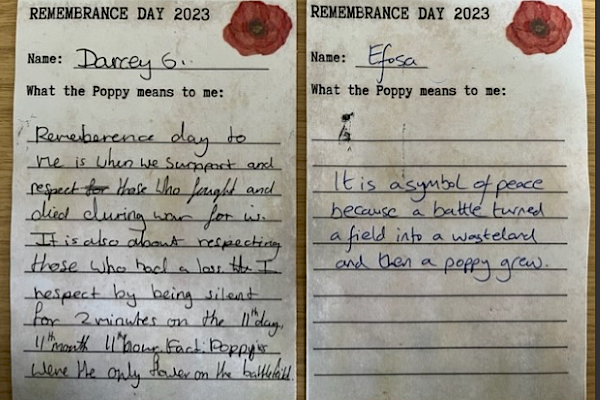 REMEMBRANCE DAY 2023
Name: Darcey G.
What the Poppy means to me:
Rememberence day to
me is when we support and
respect for those who fought and
died during war for us.
It is also about respecting
those who had a loss the I
respect by being silent
for 2 minutes on the 11th day,
11th month 11th hour. Fact: Poppy's
were the only flower on the battlefield.
REMEMBRANCE DAY 2023
Name: Efosa
What the Poppy means to me:
It is a symbol of peace
because a battle turned
a field into a wasteland
and then a poppy grew.